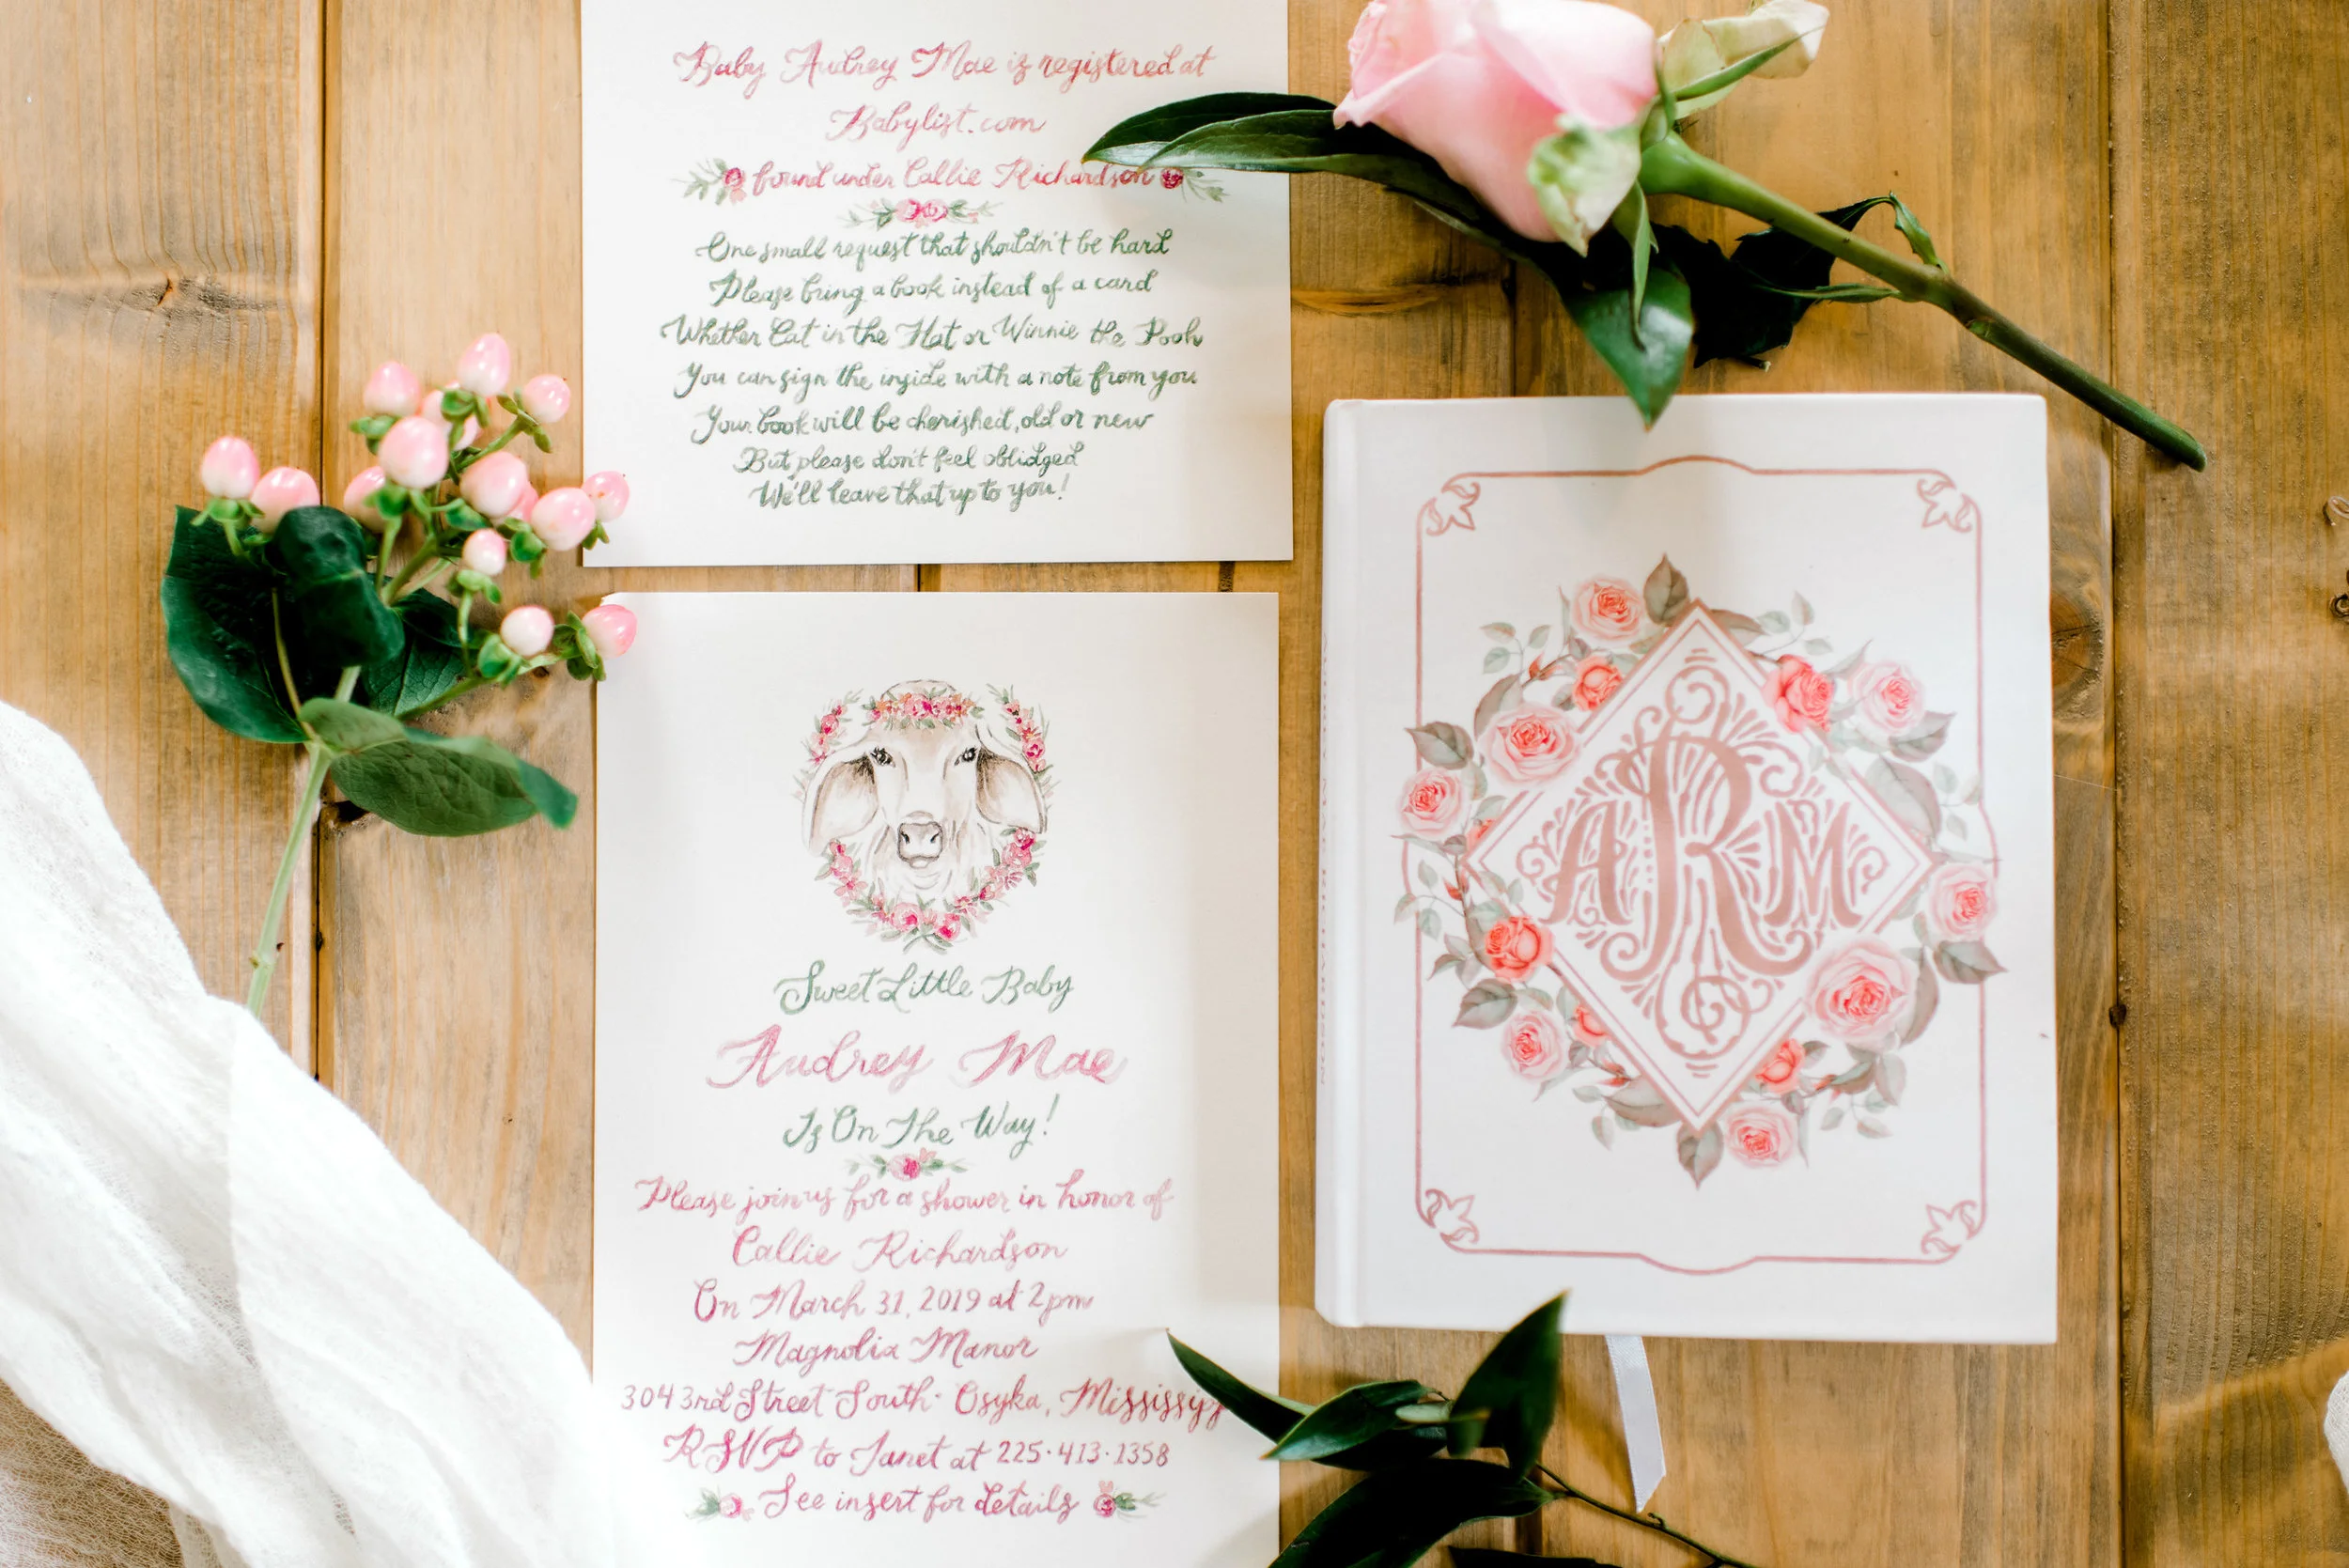 Baby Audrey Mae is registered at
Babylist.com
found under Callie Richardson
One small request that shouldn't be hard
Please bring a book instead of a card
Whether Cat in the Hat or Winnie the Pooh
You can sign the inside with a note from you
Your book will be cherished, old or new
But please don't feel oblidged
We'll leave that up to you!
Sweet Little Baby
Audrey Mae
Is On The Way!
Please join us for a shower in honor of
Callie Richardson
On March 31, 2019 at 2pm
Magnolia Manor
304 3rd Street South · Osyka, Mississipp
RSVP to Janet at 225·413·1358
See insert for details
ARM